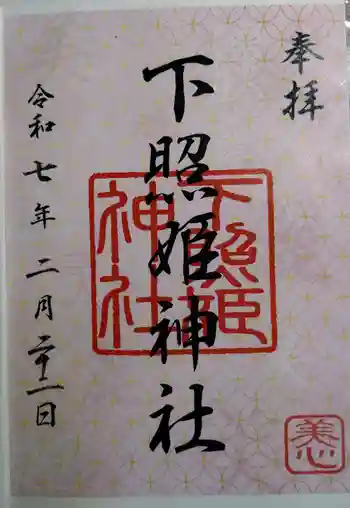 奉拝
下照姫神社
令和七年二月二十二日
下照姫
神社
美心